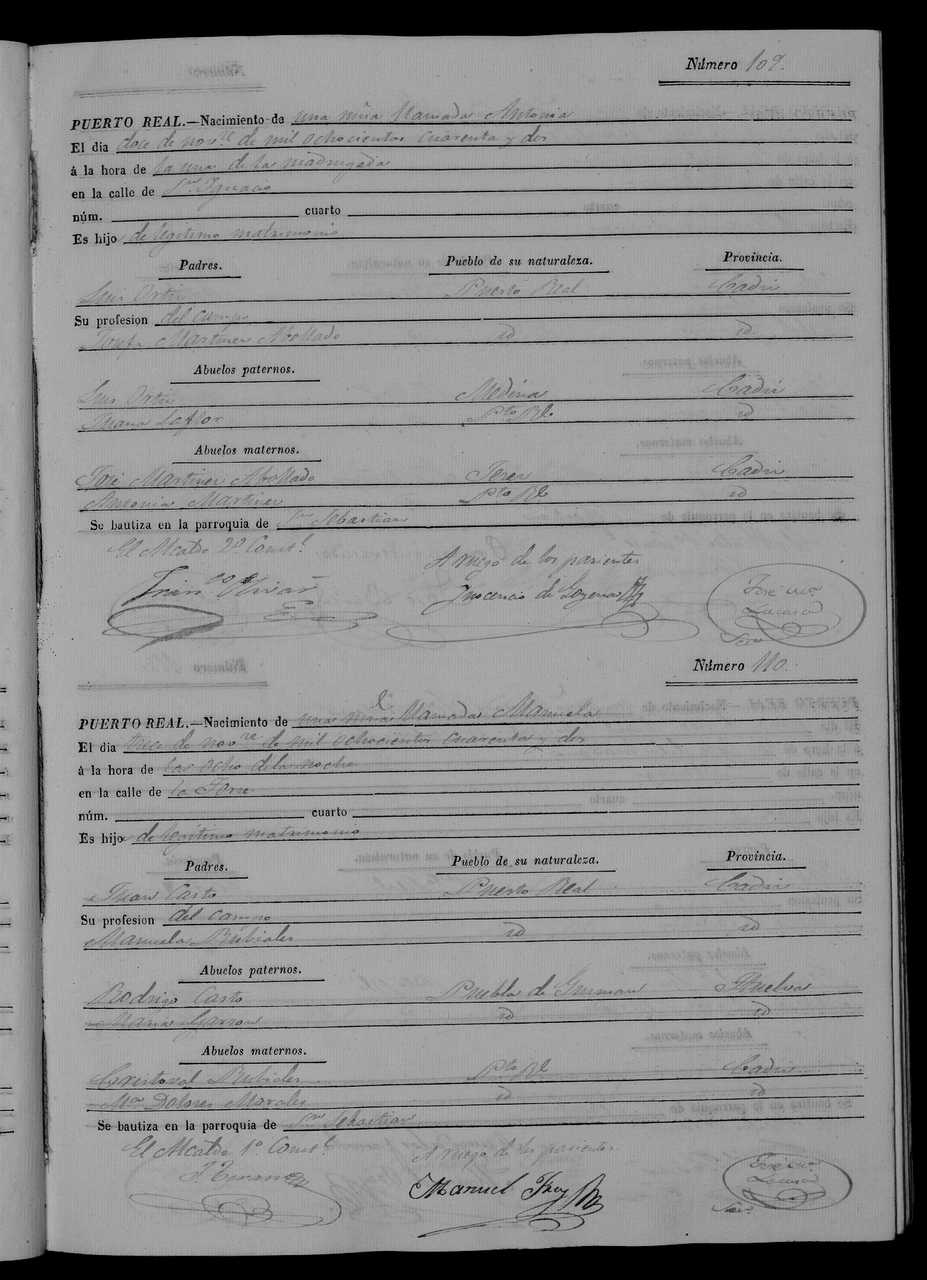 Número 109.
PUERTO REAL.—Nacimiento de una niña llamada Antonia
El dia doce de novre de mil ochocientos cuarenta y dos
á la hora de la una de la madrugada
en la calle de Sn Ignacio
núm. cuarto
Es hijo de legitimo matrimonio
Padres. Pueblo de su naturaleza. Provincia.
Luis Ortiz Puerto Real Cadiz
Su profesion del campo
Josefa Martinez Mollado id id
Abuelos paternos.
Luis Ortiz Medina Cadiz
Juana Pto Rl id
Abuelos maternos.
José Martinez Mollado Jerez Cadiz
Antonia Martinez Pto Rl id
Se bautiza en la parroquia de Sn Sebastian
El Alcalde 2º Constl
A ruego de los parientes
Franco Olivar
Inocencio de
José
Número 110.
PUERTO REAL.—Nacimiento de una niña llamada Manuela
El dia trece de novre de mil ochocientos cuarenta y dos
á la hora de las ocho de la noche
en la calle de la Torre
núm. cuarto
Es hijo de legitimo matrimonio
Padres. Pueblo de su naturaleza. Provincia.
Juan Casto Puerto Real Cadiz
Su profesion del campo
Manuela Rubiales id id
Abuelos paternos.
Rodrigo Casto Puebla de Gusman Huelva
Maria Garzon id id
Abuelos maternos.
Cristoval Rubiales Pto Rl Cadiz
Ma Dolores Morales id id
Se bautiza en la parroquia de Sn Sebastian
El Alcalde 1º Constl
A ruego de los parientes
Manuel
José